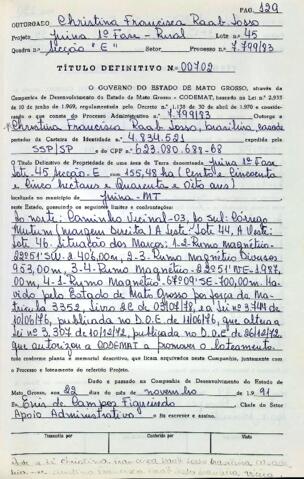 PAG. 129
OUTORGADO Christina Francisca Raab Josso
Projeto Juina 1ª Fase - Rural Lote n.o 45
Quadra n.o Secção "E" Setor Processo n.o 7.799/93
TÍTULO DEFINITIVO N.o 00702
O GOVERNO DO ESTADO DE MATO GROSSO, através da
Companhia de Desenvolvimento do Estado de Mato Grosso - CODEMAT, instituído na Lei n.o 2.933
de 10 de junho de 1969, regulamentada pelo Decreto n.o 1.138 de 30 de abril de 1970 e considerando
o que consta do Processo Administrativo n.o 7.799/93 Outorga a
Christina Francisca Raab Josso, brasileira, casada
portador da Carteira de Identidade n.o 4.934.521
expedida pela SSP/SP e do CPF n.o 623.080.689-68
O Título Definitivo de Propriedade de uma área de Terra denominada Juina 1ª Fase
Lote 45 Secção - E com 155,48 ha (Cento e Cincoenta
e Cinco hectares e Quarenta e Oito ares)
localizada no município de Juina - MT
neste Estado, possuindo os seguintes limites e confrontações:
Ao norte: Caminho Vicinal-03, Ao Sul: Córrego
Mutum (margem direita) A Leste: Lote 44, A Oeste:
Lote 46. Situação dos Marcos: 1-2-Rumo magnético-
22°51'SW - 2.406,00m, 2-3. Rumo magnético Diversos
953,00m, 3-4-Rumo Magnético - 22°51'NE-1987,
00m, 4-1-Rumo Magnético - 67°09'SE-700,00m. Ha-
vido pelo Estado de Mato Grosso por força da Ma-
trícula 3352, Livro 2C de 03/07/78, Lei nº 3.744 de
10/06/76, publicada no D.O.E de 11/06/76, que altera a
Lei nº 3.307 de 10/12/72, publicada no D.O.E de 26/12/72
que autorizou a CODEMAT a promover o loteamento.
tudo conforme planta e memorial descritivo, que ficam arquivados nesta Companhia, juntamente com
o Processo e loteamento do referido Projeto.
Dado e passado na Companhia de Desenvolvimento do Estado de
Mato Grosso, em 22 dias do mês de novembro de 1991
Eu Enir de Campos Figueiredo, Chefe do Setor
Apoio Administrativo o fiz escrever e assino.
Transcrita por Conferida por Visto